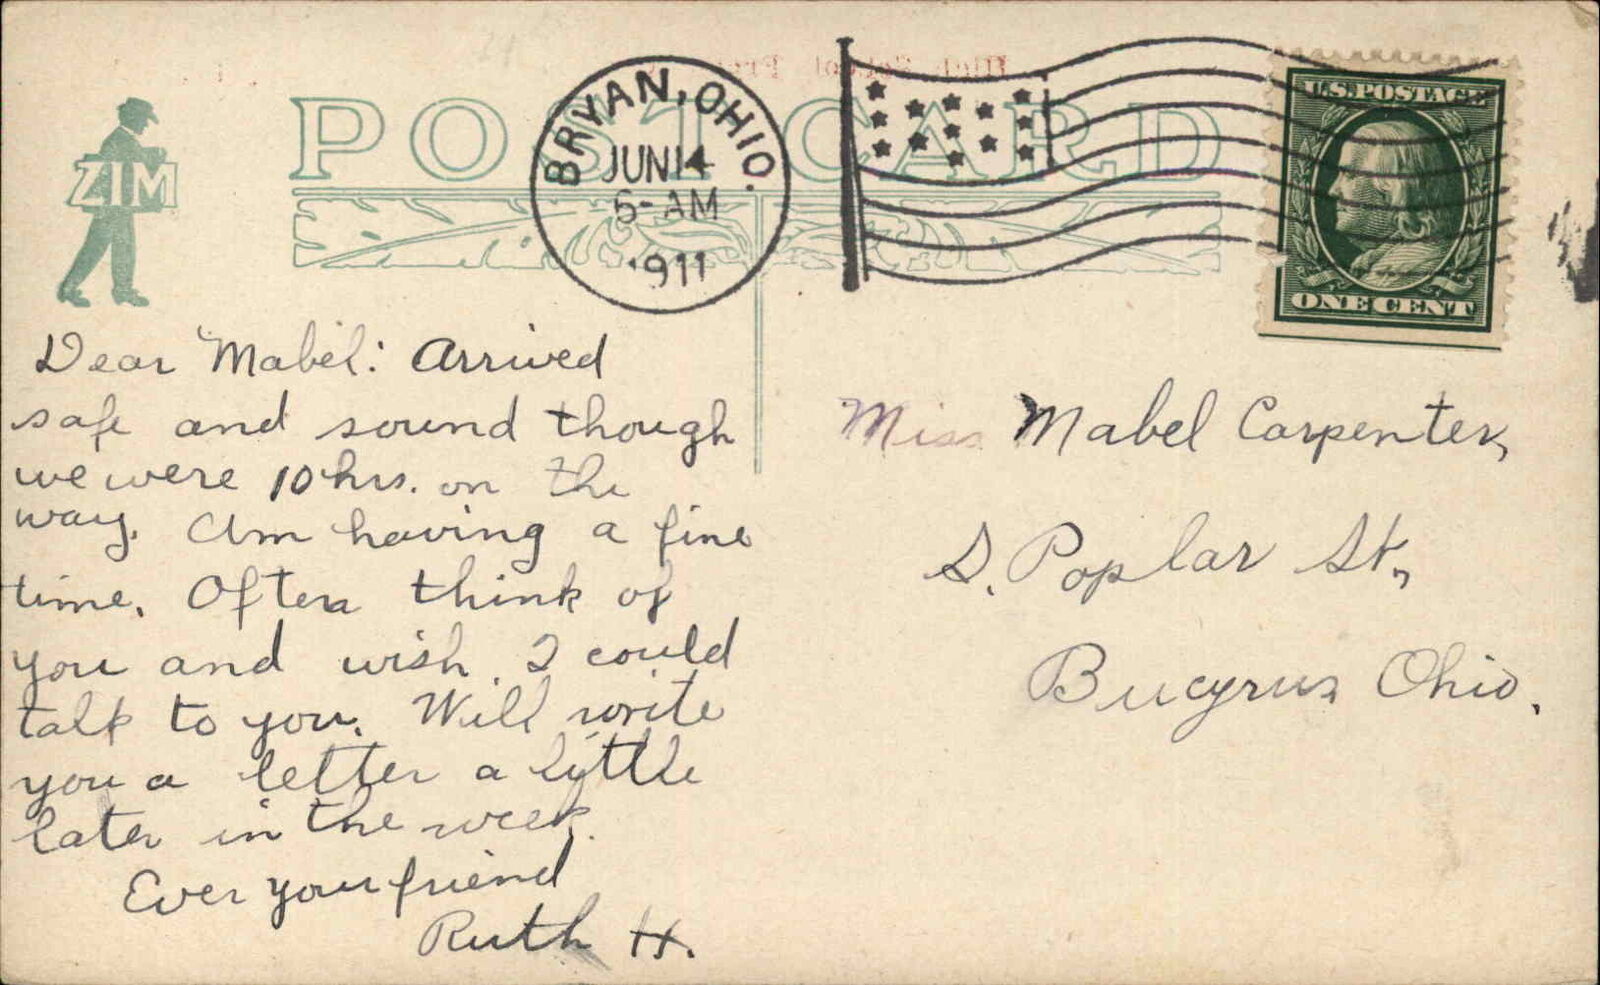 POST CARD
ZIM
BRYAN, OHIO.
JUN 14
5-AM
1911
U.S. POSTAGE
ONE CENT
Dear Mabel: Arrived
safe and sound though
we were 10 hrs. on the
way. Am having a fine
time. Often think of
you and wish I could
talk to you. Will write
you a letter a little
later in the week.
Ever your friend
Ruth H.
Miss Mabel Carpenter,
S. Poplar St.,
Bucyrus Ohio.